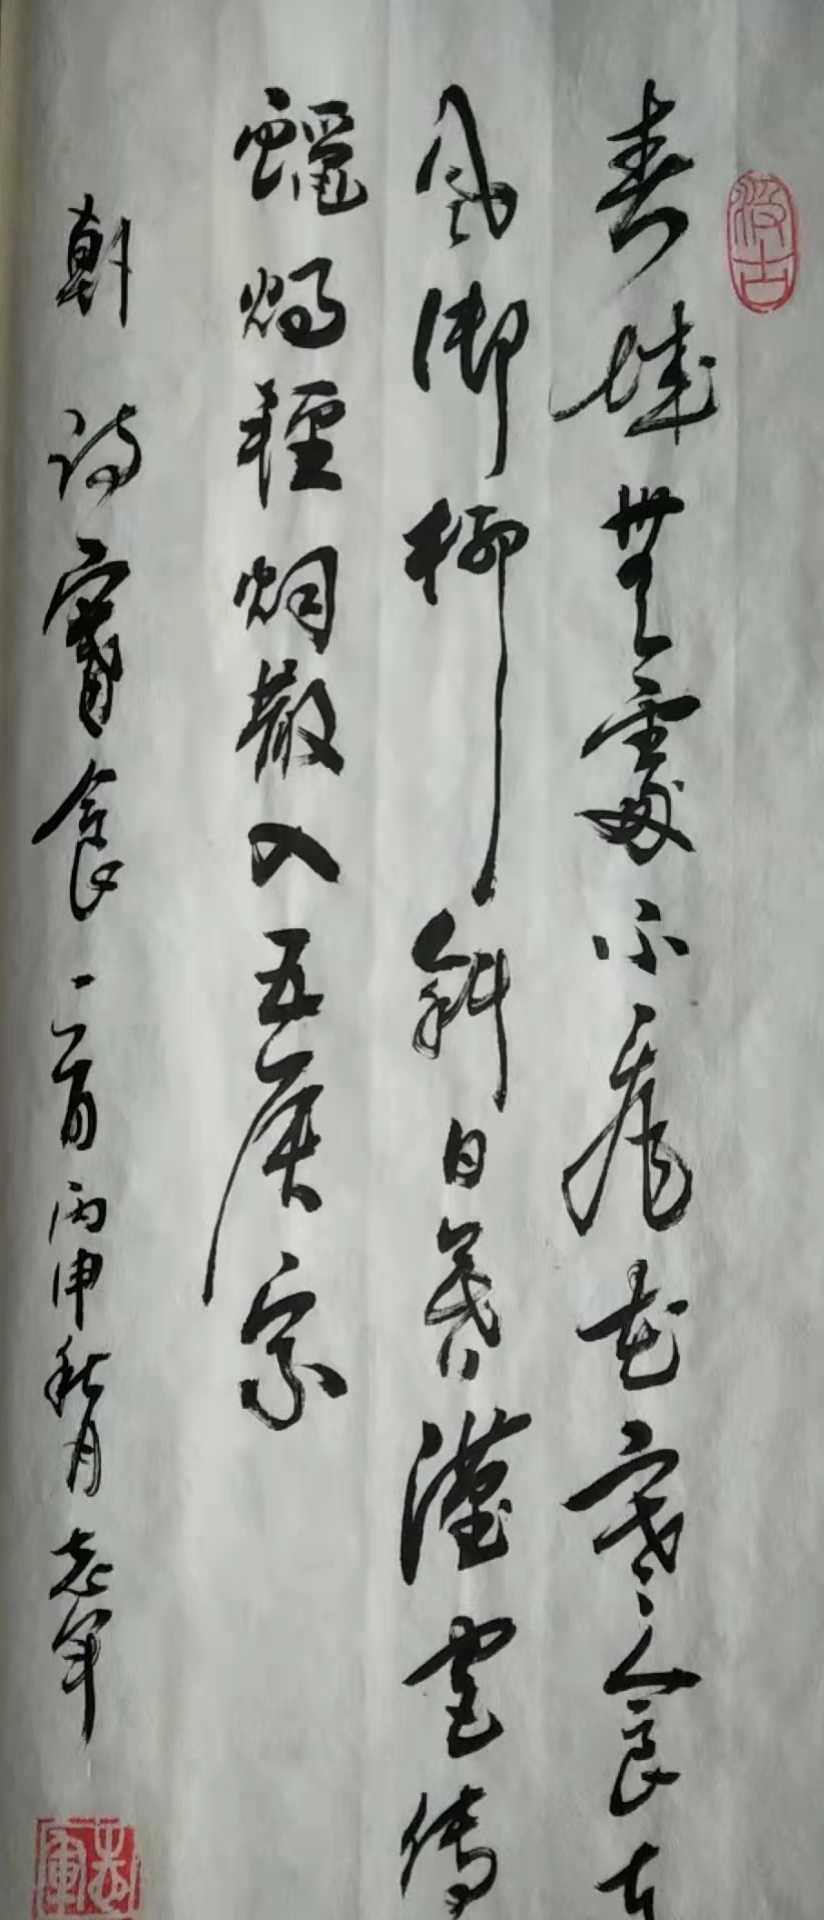 汲古
春城無處不飛花寒食东
風御柳斜日暮漢宮傳
蠟燭輕烟散入五侯家
韓詩寒食一首丙申秋月志军
志軍